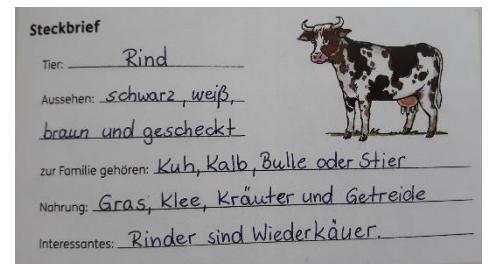 Steckbrief
Tier: Rind
Aussehen: schwarz, weiß,
braun und gescheckt
zur Familie gehören: Kuh, Kalb, Bulle oder Stier
Nahrung: Gras, Klee, Kräuter und Getreide
Interessantes: Rinder sind Wiederkäuer.